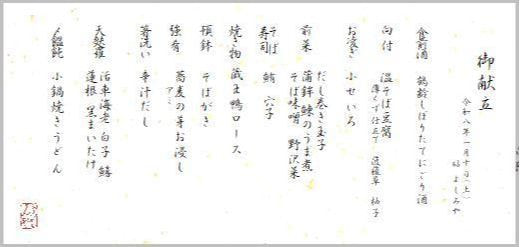 御献立
令和八年一月十日(土)
於 よしみや
食前酒 鶴齢しぼりたてにごり酒
向付 温そば豆腐
薄くず仕立て 菠薐草 柚子
お凌ぎ 小せいろ
前菜 だし巻き玉子
蒲鉾 鰊のうま煮
そば味噌 野沢菜
そば寿司 鮪 穴子
焼き物 蔵王鴨ロース
椀鉢 そばがき
強肴 蕎麦の芽お浸し
箸洗い 辛汁だし
天麩羅 活車海老 白子 鱚
蓮根 黒まいたけ
〆饂飩 小鍋焼きうどん